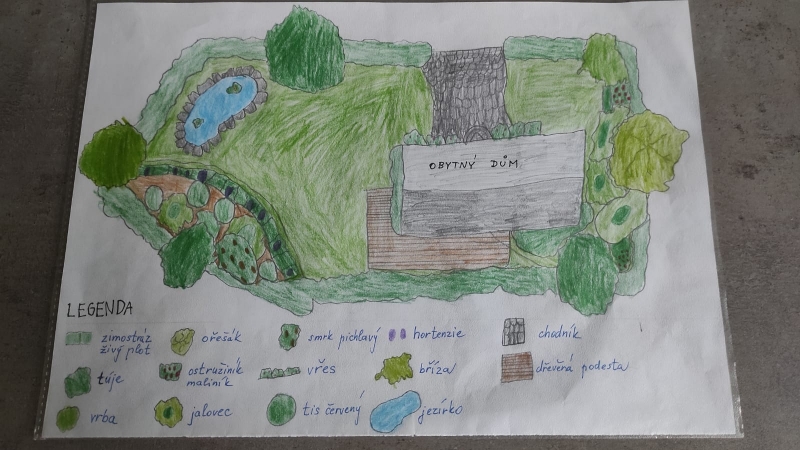 OBYTNÝ DŮM
LEGENDA
zimostráz
živý plot
ořešák
smrk pichlavý
hortenzie
chodník
túje
ostružiník
maliník
vřes
bříza
dřevěná podesta
vrba
jalovec
tis červený
jezírko